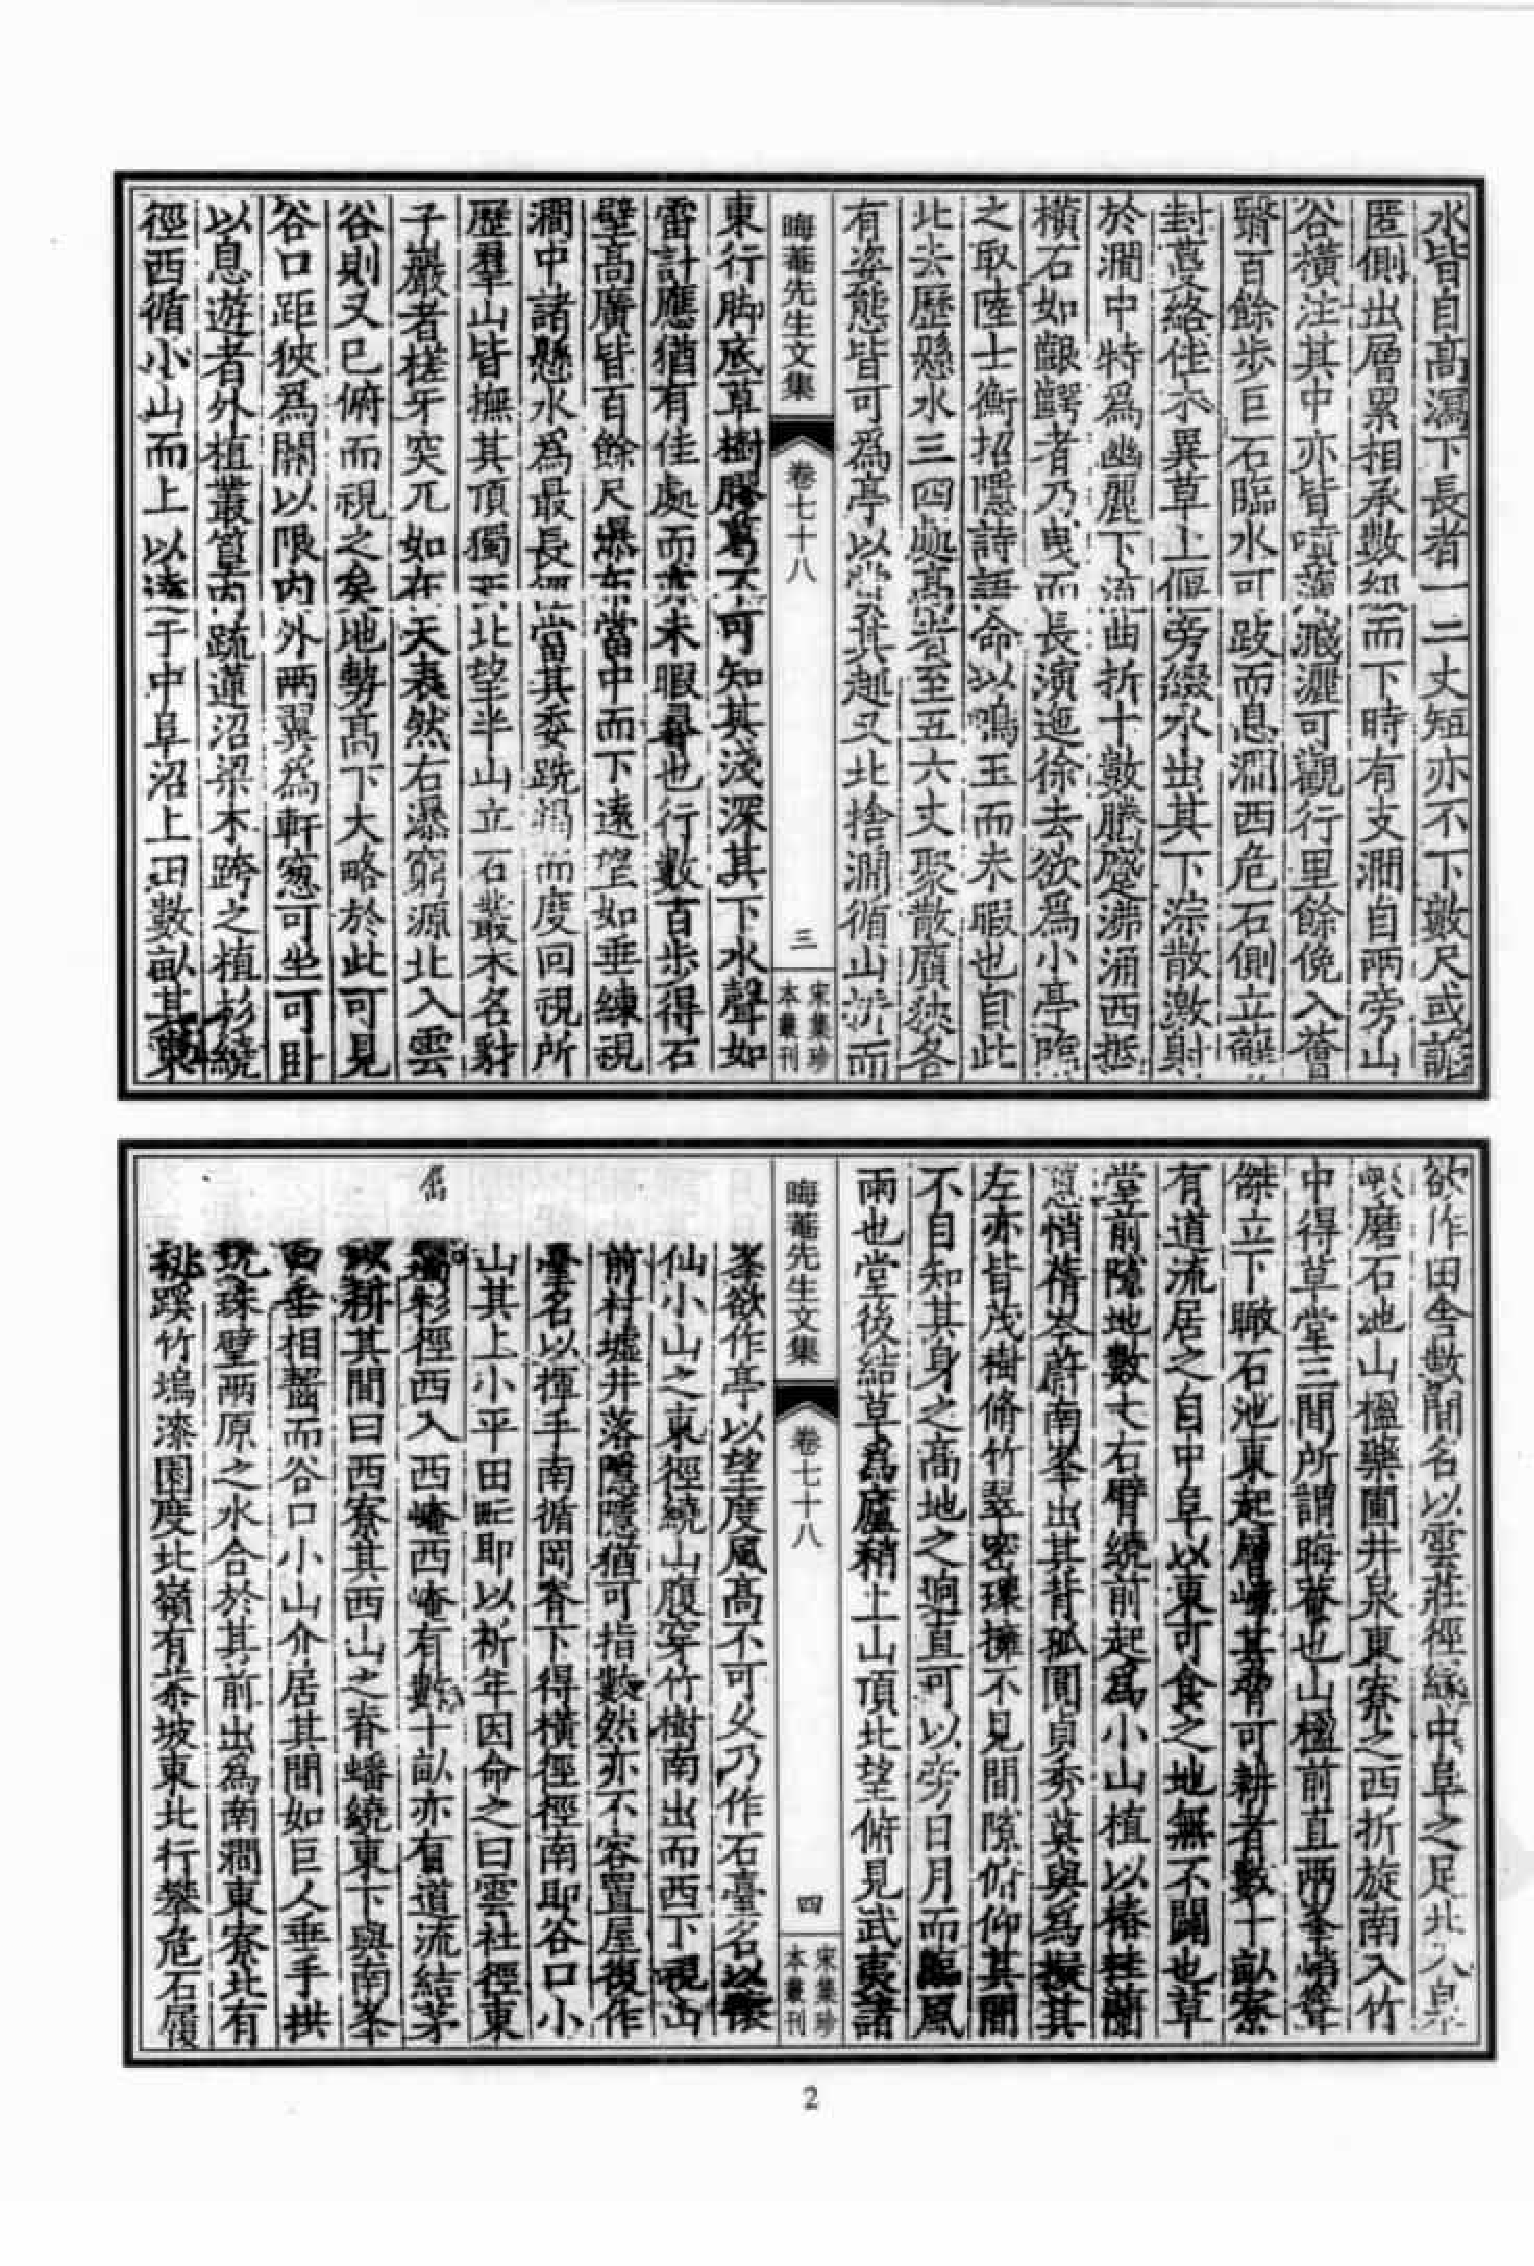 水皆自高瀉下長者一二丈短亦不下數尺或詭
匿側出層累相承數級而下時有支澗自兩旁山
谷橫注其中亦皆噴薄濺灑可觀行里餘俛入薈
翳百餘步巨石臨水可跂而息澗西危石側立蘚
封蔓絡佳木異草上偃旁綴水出其下淙散激射
於澗中特為幽麗下流曲折十數騰蹙沸涌西抵
橫石如齦齶者乃曳而長演迤徐去欲為小亭臨
之取陸士衡招隱詩語命以鳴玉而未暇也自此
北去歷懸水三四處高者至五六丈聚散廣狹各
有姿態皆可為亭以賞其趣又北捨澗循山折而
晦菴先生文集
卷七十八
三
宋集珍
本叢刊
東行脚底草樹膠葛不可知其淺深其下水聲如
雷計應猶有佳處而亦未暇尋也行數百步得石
壁高廣皆百餘尺瀑布當中而下遠望如垂練視
澗中諸懸水為最長徑當其委跣揭而度回視所
歷羣山皆撫其頂獨西北望半山立石叢木名豺
子巖者槎牙突兀如在天表然右瀑窮源北入雲
谷則又已俯而視之矣地勢高下大略於此可見
谷口距狹為關以限內外兩翼為軒窻可坐可卧
以息遊者外植叢篁內疏蓮沼梁木跨之植杉繞
徑西循小山而上以達于中阜沼上田數畝其東
欲作田舍數間名以雲莊徑緣中阜之足北入泉
峽磨石池山楹藥圃井泉東寮之西折旋南入竹
中得草堂三間所謂晦菴也山楹前直兩峯峭聳
傑立下瞰石池東起層嶂其脅可耕者數十畝寮
有道流居之自中阜以東可食之地無不闢也草
堂前隙地數丈右臂繞前起為小山植以椿桂蘭
蕙悄蒨岑蔚南峯出其背孤圓貞秀莫與為擬其
左亦皆茂樹脩竹翠密環擁不見間隙俯仰其間
不自知其身之高地之逈直可以旁日月而臨風
雨也堂後結草為廬稍上山頂北望俯見武夷諸
晦菴先生文集
卷七十八
四
宋集珍
本叢刊
峯欲作亭以望度風高不可乆乃作石臺名以懷
仙小山之東徑繞山腹穿竹樹南出而西下視山
前村墟井落隱隱猶可指數然亦不容置屋復作
臺名以揮手南循岡脊下得橫徑徑南即谷口小
山其上小平田甿即以祈年因命之曰雲社徑東
屬杉徑西入西崦西崦有數十畝亦有道流結茅
以耕其間曰西寮其西山之脊蟠繞東下與南峯
西垂相齧而谷口小山介居其間如巨人垂手拱
玩珠璧兩原之水合於其前出為南澗東寮北有
桃蹊竹塢漆園度北嶺有茶坡東北行攀危石履